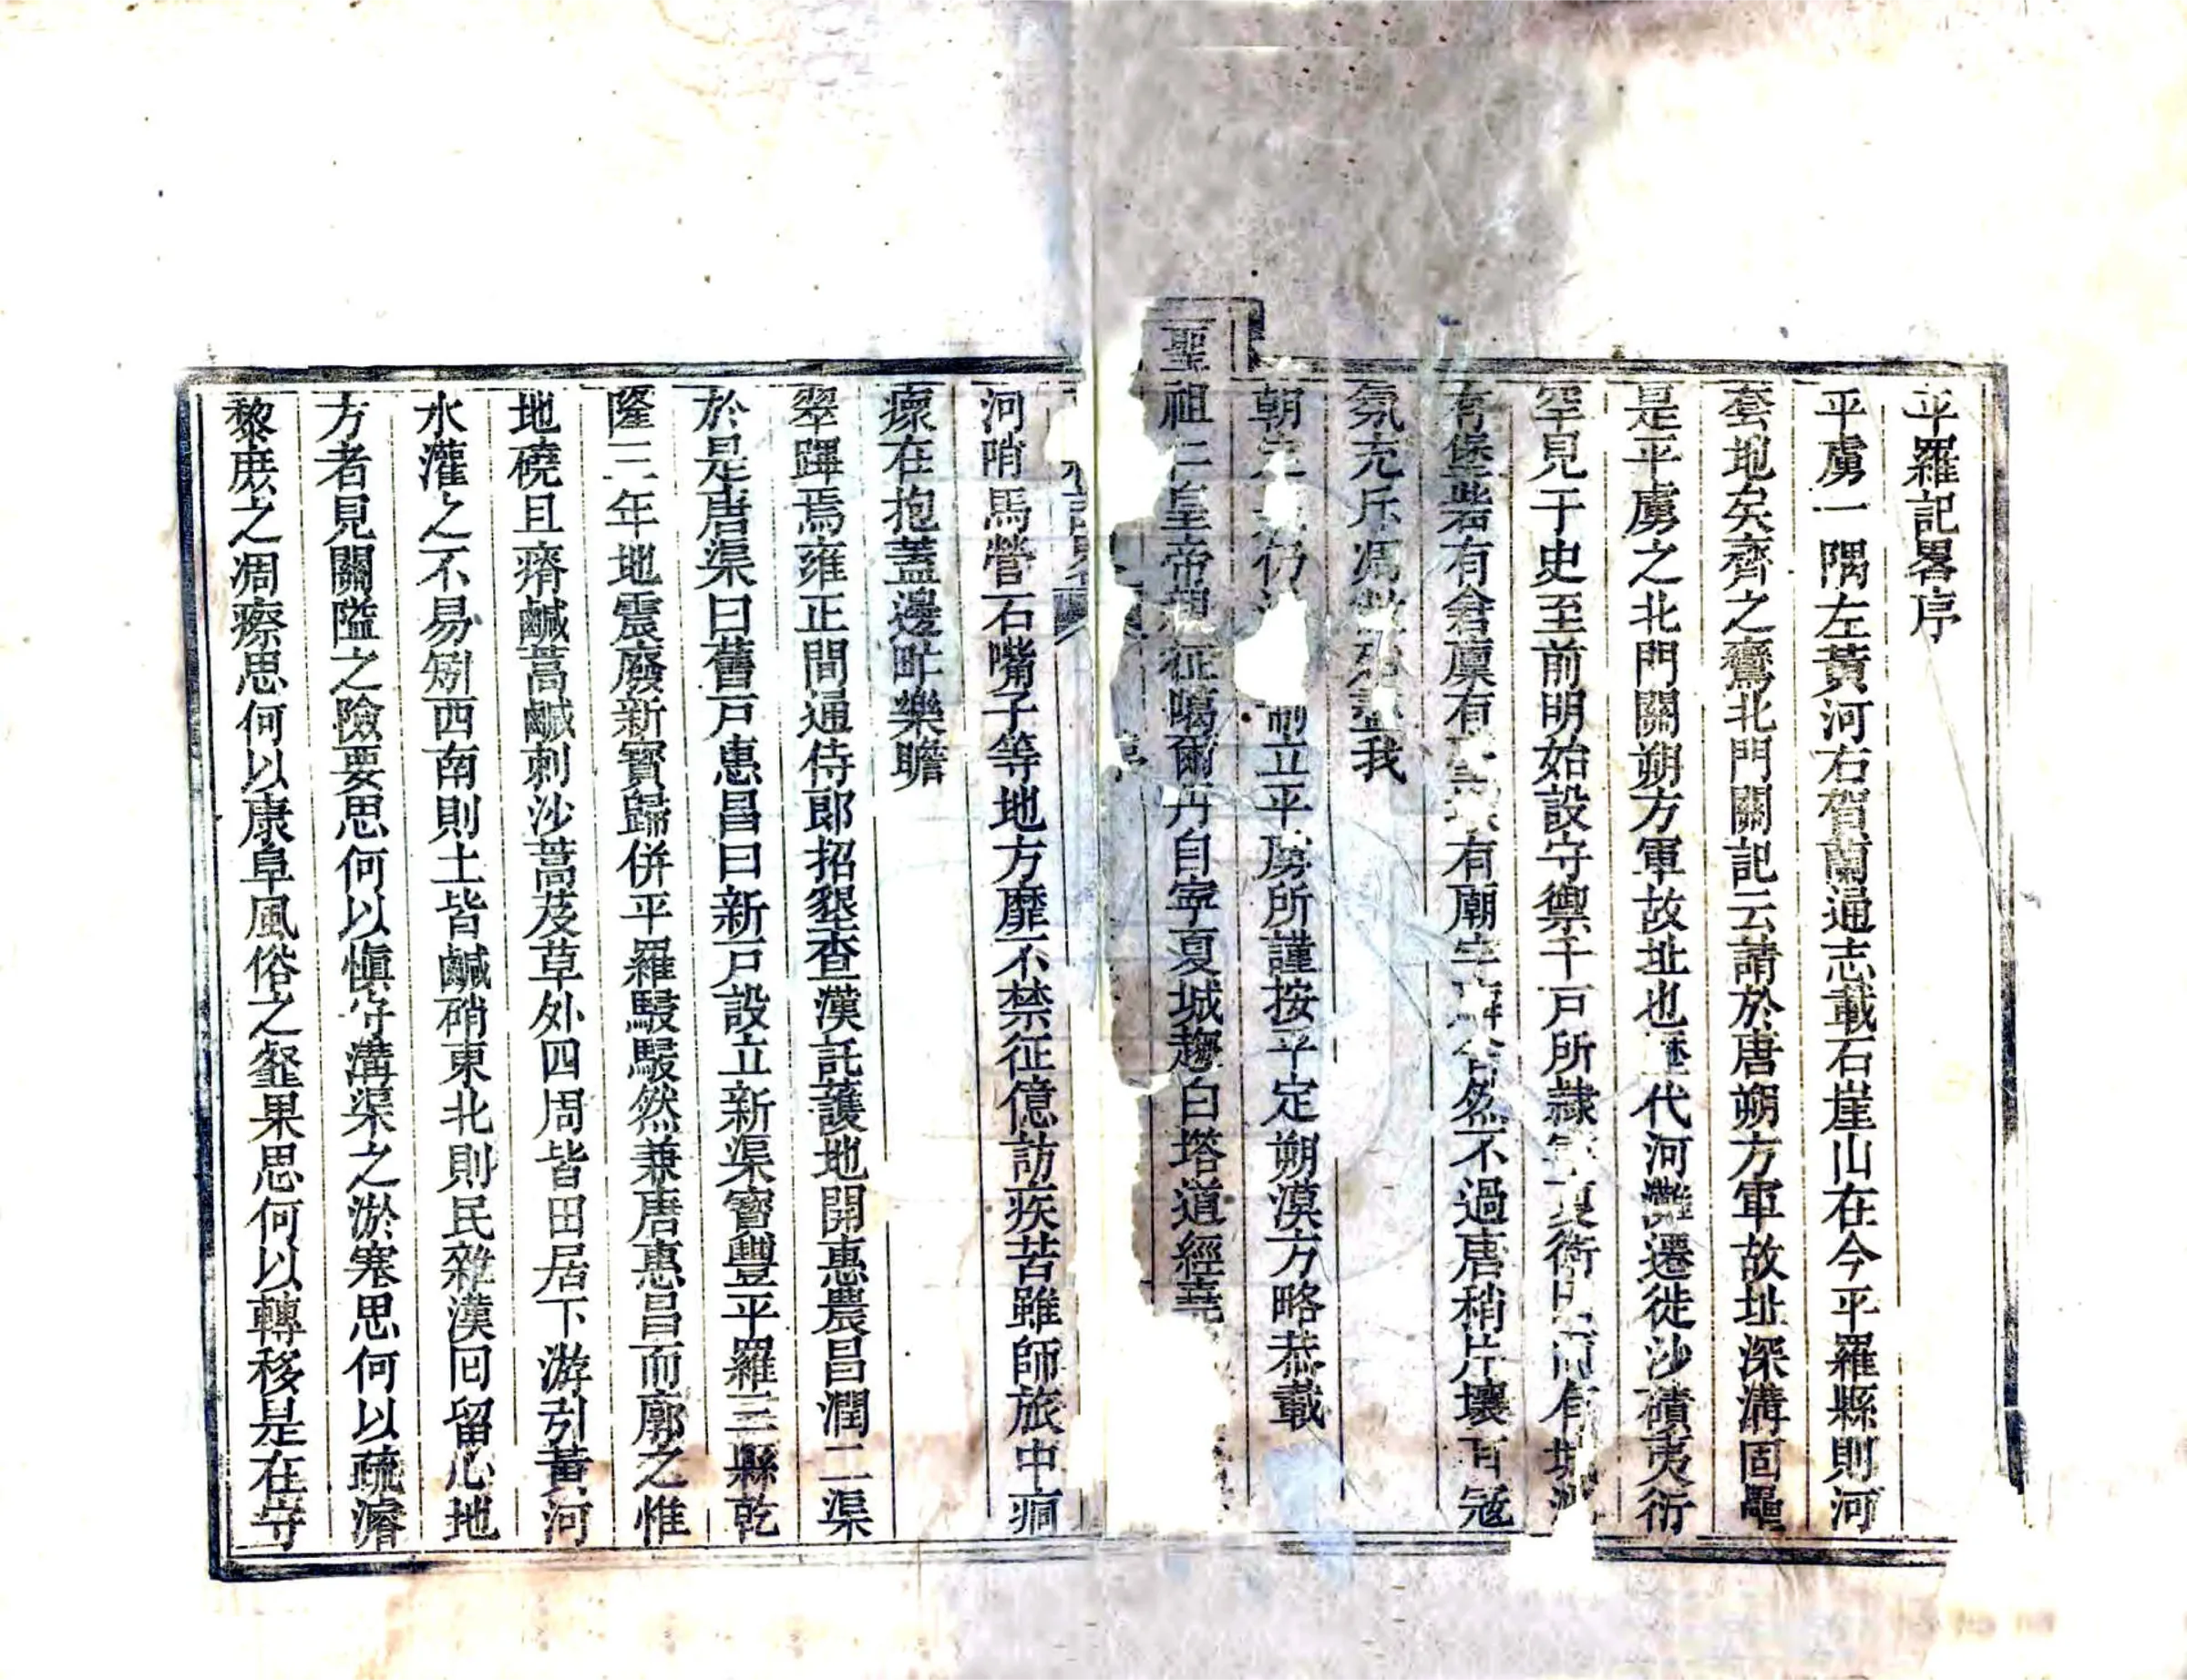 平羅記畧序
平虜一隅左黃河右賀蘭通志載石崖山在今平羅縣則河
套地矣齊之鸞北門關記云請於唐朔方軍故址深溝固壘
是平虜之北門關朔方軍故址也歷代河灘遷徙沙磧夷衍
罕見于史至前明始設守禦千戶所隸夏衛有城
有堡砦有倉廩有有廟宇然不過唐稍片壤耳冦
氛充斥馮我
朝定仍立平虜所謹按平定朔漠方略恭載
聖祖仁皇帝親征噶爾丹自寧夏城趨白塔道經堯
河哨馬營石嘴子等地方靡不禁征億訪疾苦雖師旅中痌
瘝在抱蓋邊甿樂瞻
翠蹕焉雍正間通侍郎招墾查漢託護地開惠農昌潤二渠
於是唐渠曰舊戶惠昌曰新戶設立新渠寶豐平羅三縣乾
隆三年地震廢新寳歸併平羅駸駸然兼唐惠昌而廓之惟
地磽且瘠鹹蒿鹹刺沙蒿芨草外四周皆田居下游引黃河
水灌之不易矧西南則土皆鹹硝東北則民雜漢回留心地
方者見關隘之險要思何以愼守溝渠之淤寒思何以疏濬
黎庻之凋瘵思何以康阜風俗之壑果思何以轉移是在守